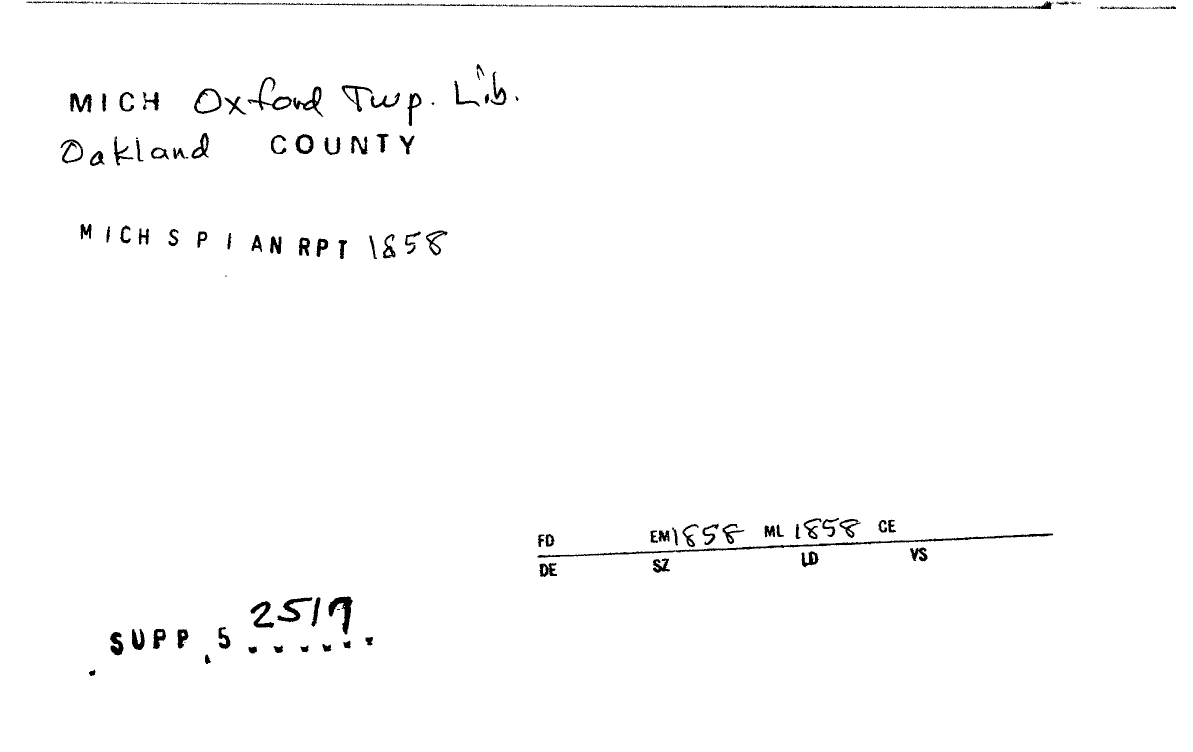 MICH Oxford Twp. Lib.
Oakland COUNTY
MICH S P I AN RPT 1858
FD EM 1858 ML 1858 CE
DE SZ LD VS
SUPP, 5 2517